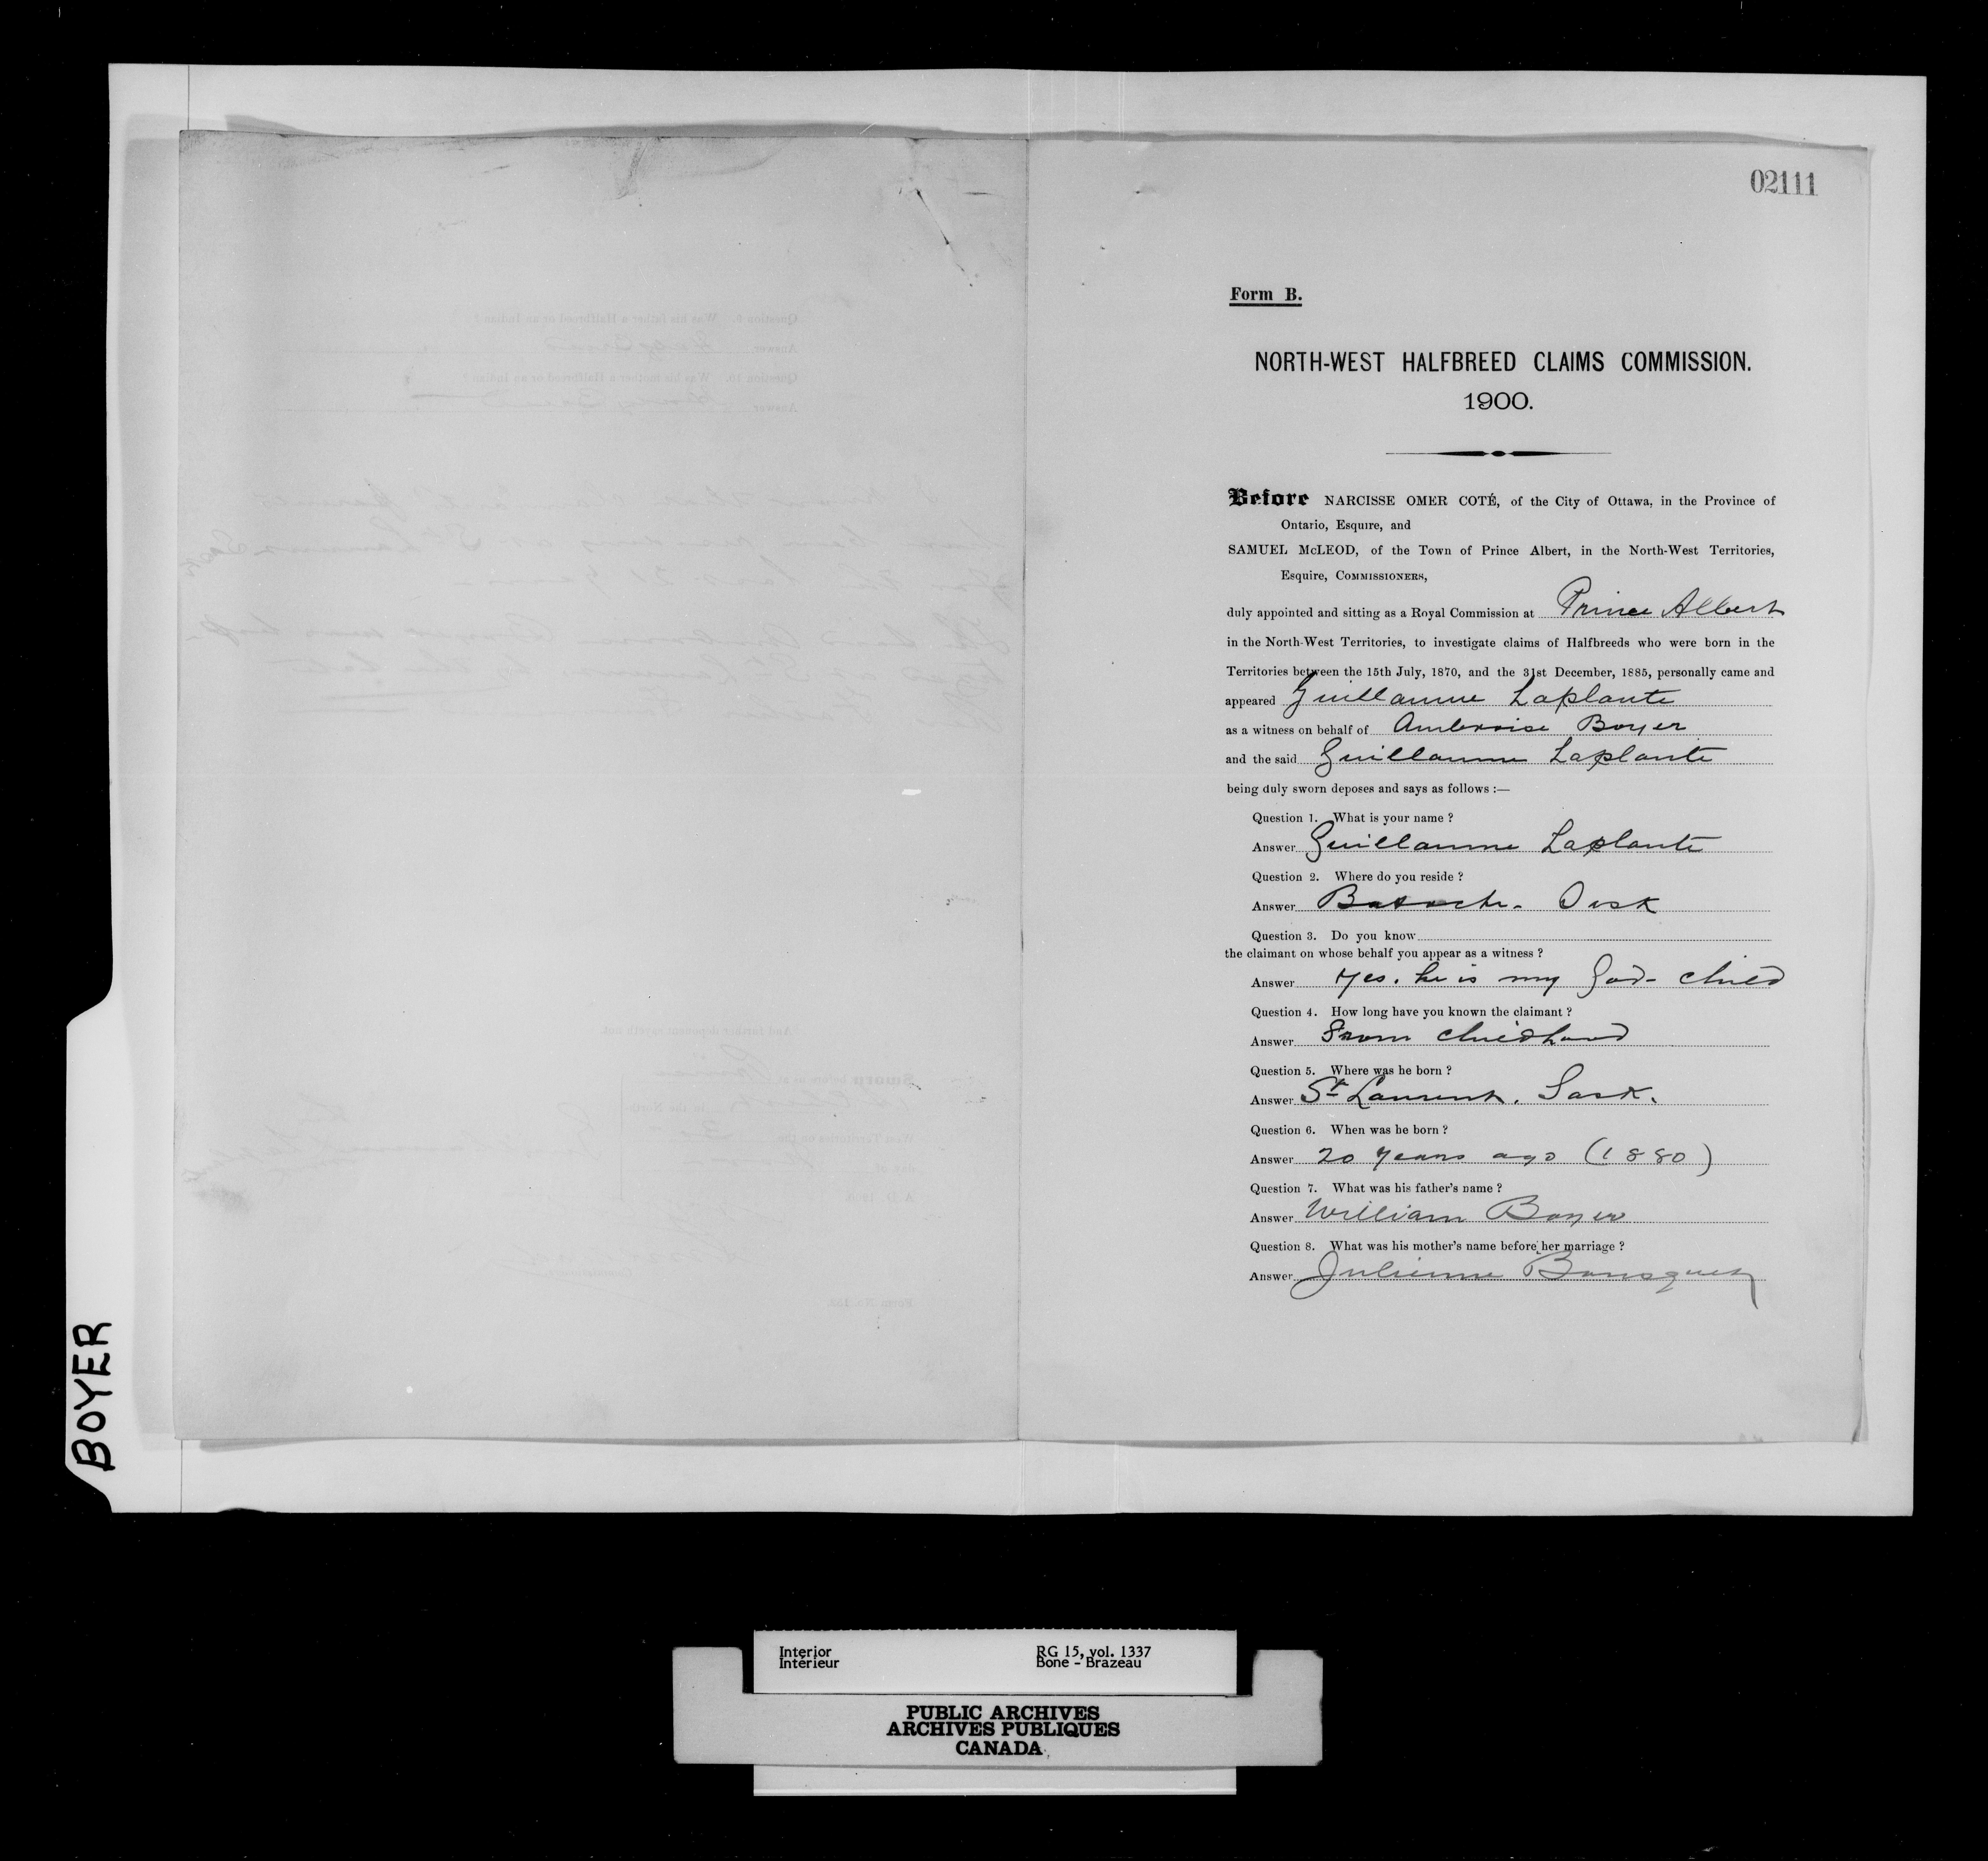 02111
Form B.
NORTH-WEST HALFBREED CLAIMS COMMISSION.
1900.
Before NARCISSE OMER COTÉ, of the City of Ottawa, in the Province of
Ontario, Esquire, and
SAMUEL McLEOD, of the Town of Prince Albert, in the North-West Territories,
Esquire, COMMISSIONERS,
duly appointed and sitting as a Royal Commission at Prince Albert
in the North-West Territories, to investigate claims of Halfbreeds who were born in the
Territories between the 15th July, 1870, and the 31st December, 1885, personally came and
appeared Guillaume Laplante
as a witness on behalf of Ambroise Boyer
and the said Guillaume Laplante
being duly sworn deposes and says as follows :—
Question 1. What is your name ?
Answer Guillaume Laplante
Question 2. Where do you reside ?
Answer Batoche. Sask
Question 3. Do you know
the claimant on whose behalf you appear as a witness ?
Answer Yes. he is my God-child
Question 4. How long have you known the claimant ?
Answer From childhood
Question 5. Where was he born ?
Answer St Laurent. Sask.
Question 6. When was he born ?
Answer 20 years ago (1880)
Question 7. What was his father's name ?
Answer William Boyer
Question 8. What was his mother's name before her marriage ?
Answer Julienne Bousquet
BOYER
Interior
Intérieur
RG 15, vol. 1337
Bone - Brazeau
PUBLIC ARCHIVES
ARCHIVES PUBLIQUES
CANADA